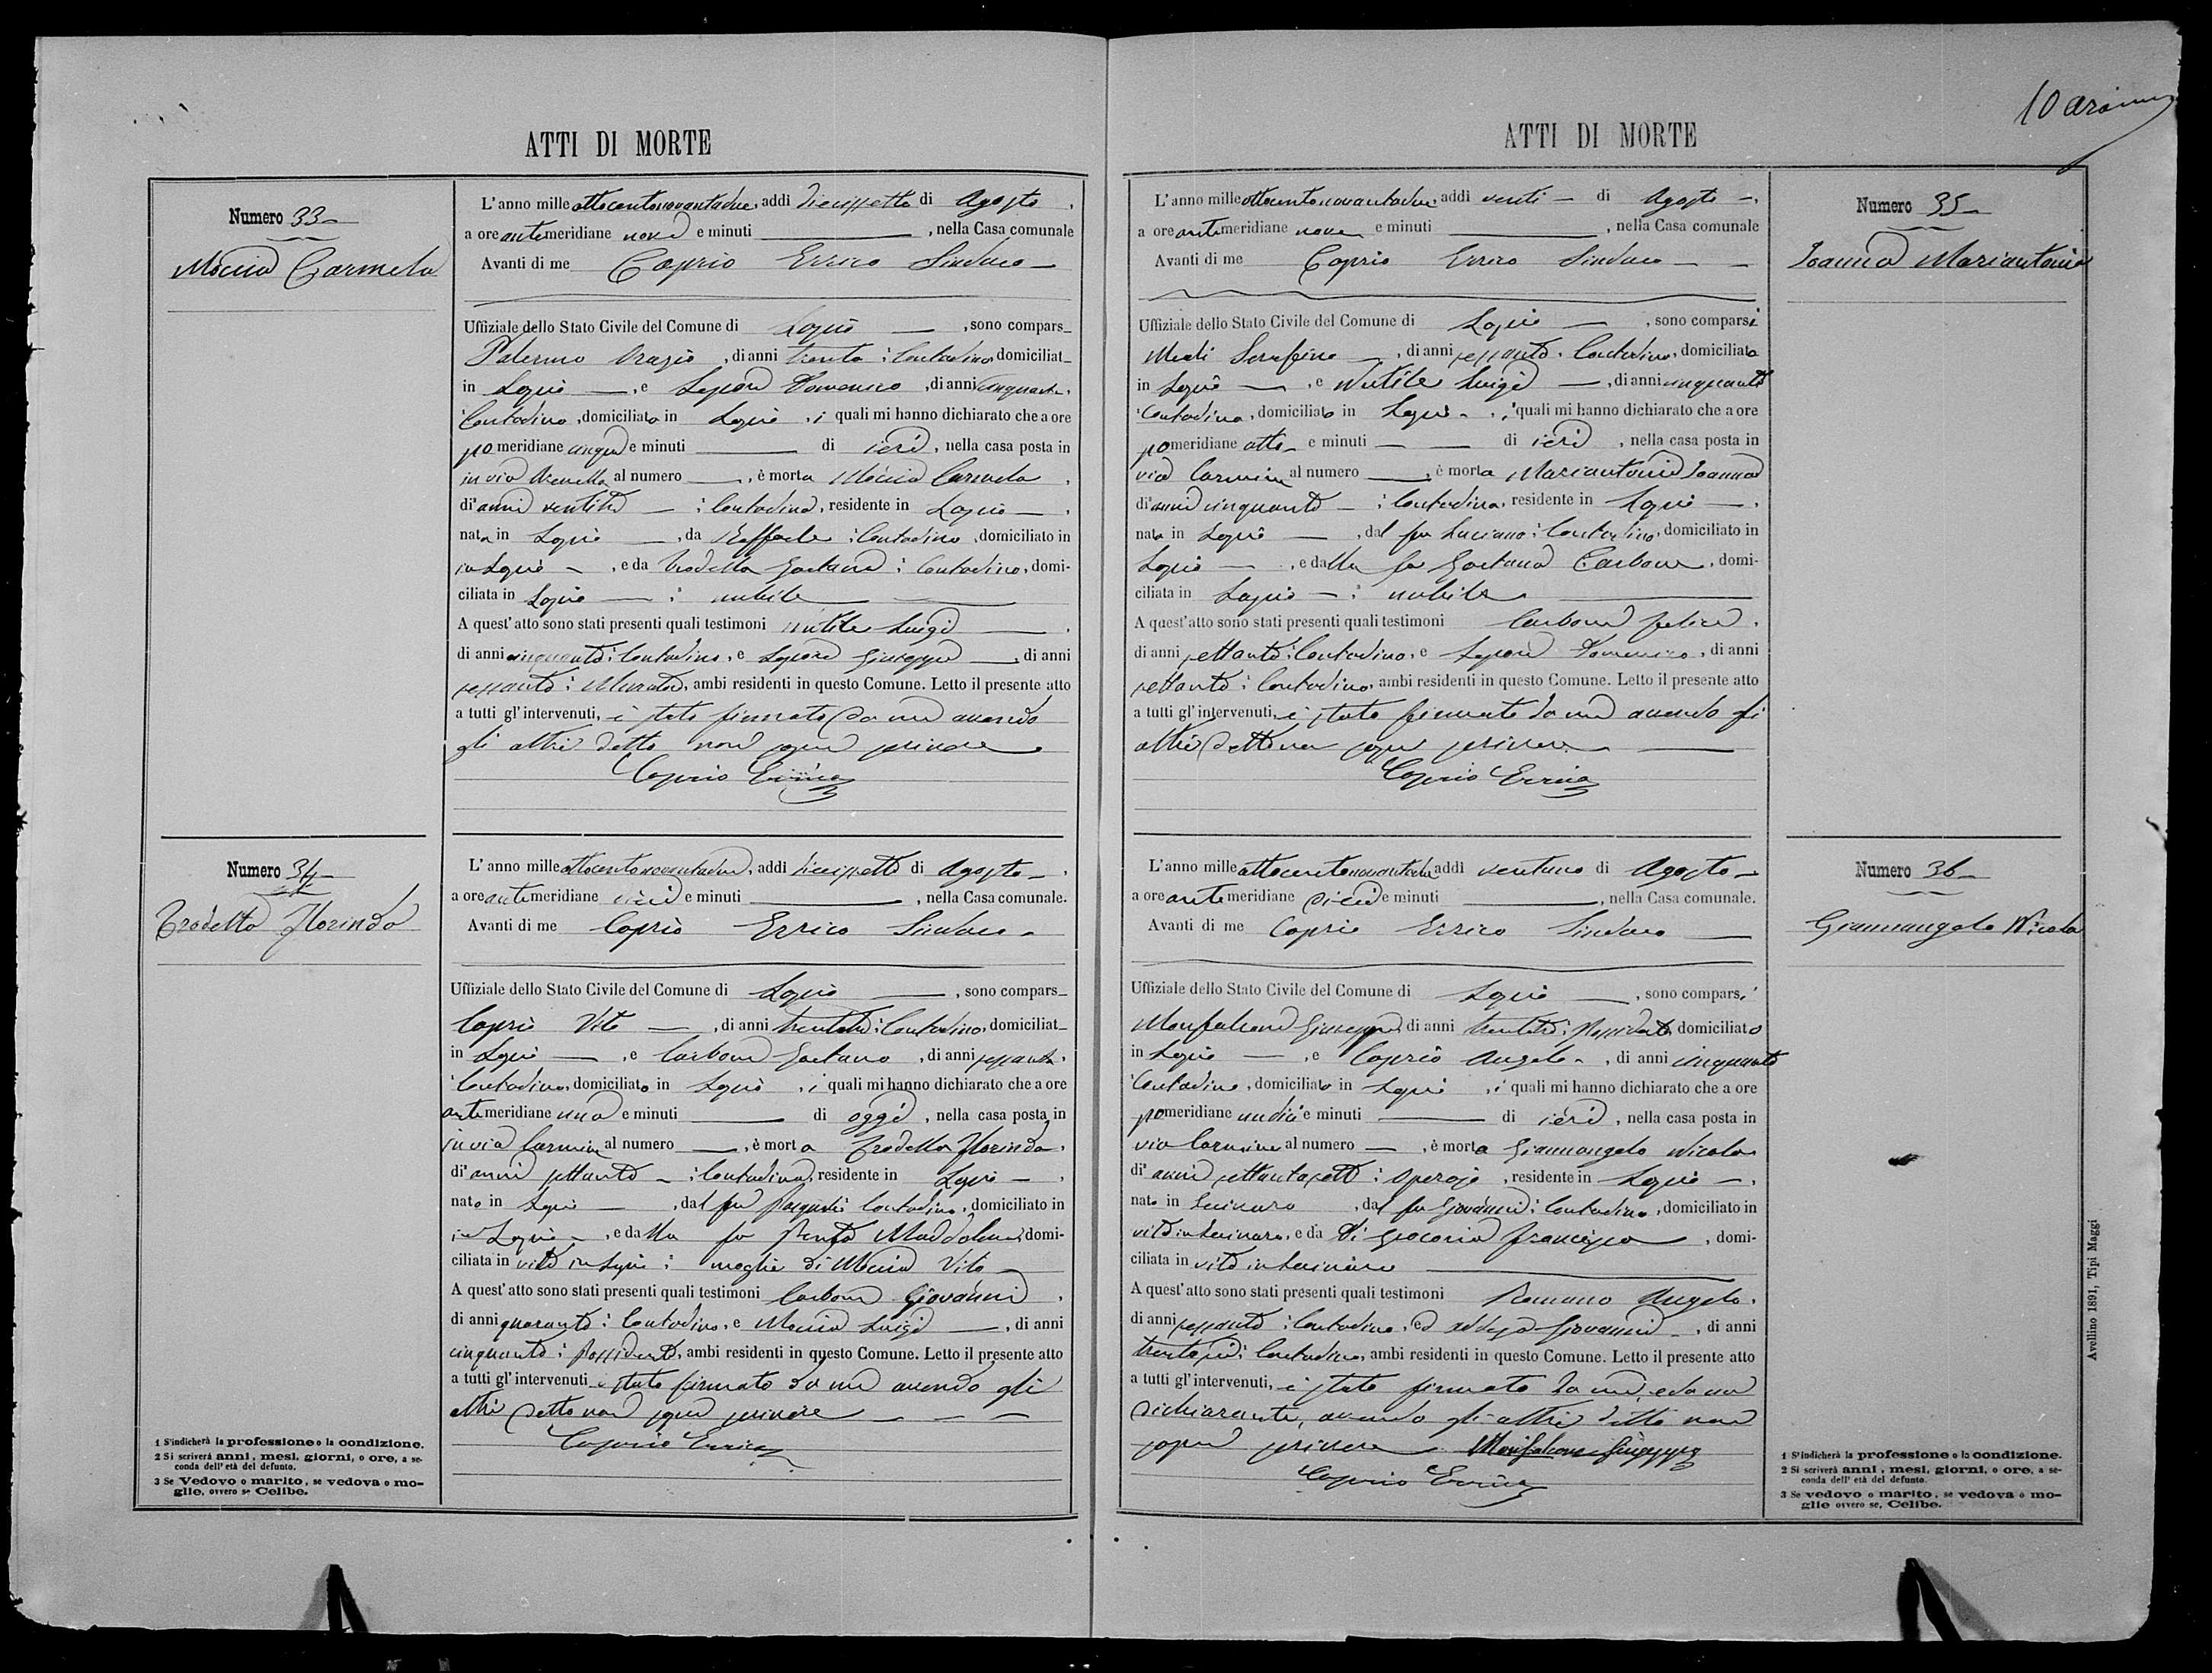 ATTI DI MORTE
Numero 33
Moccia Carmela
L'anno mille ottocentonovantadue, addì diciassette di Agosto,
a ore antimeridiane nove e minuti ———, nella Casa comunale
Avanti di me Caprio Errico Sindaco
Uffiziale dello Stato Civile del Comune di Lapio —, sono compars_
Palermo Orazio, di anni trenta: Contadino domiciliat_
in Lapio —, e Lepore Domenico, di anni cinquanta,
Contadino, domiciliato in Lapio, i quali mi hanno dichiarato che a ore
pomeridiane cinque e minuti ——— di ieri, nella casa posta in
in via al numero —, è morta Moccia Carmela,
di anni — : Contadina, residente in Lapio —,
nata in Lapio —, da Raffaele: Contadino, domiciliato in
in Lapio —, e da Trodella Gaetana: Contadina, domi-
ciliata in Lapio — : nubile
A quest'atto sono stati presenti quali testimoni Nutile Luigi —,
di anni cinquanta: Contadino, e Lepore Giuseppe —, di anni
sessanta: Muratore, ambi residenti in questo Comune. Letto il presente atto
a tutti gl'intervenuti, è stato firmato da me avendo
gli altri detto non saper scrivere
Caprio Errico
Numero 34
Trodella Florinda
L'anno mille ottocentonovantadue, addì diciassette di Agosto —,
a ore antimeridiane dieci e minuti ———, nella Casa comunale.
Avanti di me Caprio Errico Sindaco
Uffiziale dello Stato Civile del Comune di Lapio —, sono compars_
Caprio Vito —, di anni trentatre: Contadino, domiciliat_
in Lapio —, e Carbone Gaetano, di anni sessanta,
Contadino, domiciliato in Lapio, i quali mi hanno dichiarato che a ore
antimeridiane una e minuti ——— di oggi, nella casa posta in
in via Carmine al numero —, è morta Trodella Florinda,
di anni settanta — : Contadina, residente in Lapio —,
nato in Lapio —, dal fu Pasquale Contadino, domiciliato in
in Lapio —, e dalla fu Maddalena, domi-
ciliata in vita in Lapio : moglie di Moccia Vito
A quest'atto sono stati presenti quali testimoni Carbone Giovanni,
di anni quaranta: Contadino, e Moccia Luigi —, di anni
cinquanta: Possidente, ambi residenti in questo Comune. Letto il presente atto
a tutti gl'intervenuti è stato firmato da me avendo gli
altri detto non saper scrivere
Caprio Errico
1 S'indicherà la professione o la condizione.
2 Si scriverà anni, mesi, giorni, o ore, a se-
conda dell'età del defunto.
3 Se Vedovo o marito, se vedova o mo-
glie, ovvero se Celibe.
ATTI DI MORTE
Numero 35
Ioanna Mariantonia
L'anno mille ottocentonovantadue, addì venti — di Agosto —,
a ore antimeridiane nove e minuti ———, nella Casa comunale
Avanti di me Caprio Errico Sindaco
Uffiziale dello Stato Civile del Comune di Lapio —, sono comparsi
Serafino —, di anni sessanta: Contadino, domiciliato
in Lapio —, e Nutile Luigi —, di anni cinquanta
Contadino, domiciliato in Lapio, i quali mi hanno dichiarato che a ore
pomeridiane otto e minuti ——— di ieri, nella casa posta in
via Carmine al numero —, è morta Mariantonia Ioanna
di anni cinquanta — : Contadina, residente in Lapio —,
nata in Lapio —, dal fu Luciano: Contadino, domiciliato in
Lapio —, e dalla fu Gaetana Carbone, domi-
ciliata in Lapio — : nubile
A quest'atto sono stati presenti quali testimoni Carbone Felice,
di anni settanta: Contadino, e Lepore Domenico, di anni
settanta: Contadino, ambi residenti in questo Comune. Letto il presente atto
a tutti gl'intervenuti, è stato firmato da me avendo gli
altri detto non saper scrivere
Caprio Errico
Numero 36
Giannangelo Nicola
L'anno mille ottocentonovantadue addì ventuno di Agosto —
a ore antimeridiane dieci e minuti ———, nella Casa comunale.
Avanti di me Caprio Errico Sindaco
Uffiziale dello Stato Civile del Comune di Lapio —, sono comparsi
Monfalcone Giuseppe, di anni trentatre: Possidente domiciliato
in Lapio —, e Caprio Angelo, di anni cinquanta
Contadino, domiciliato in Lapio, i quali mi hanno dichiarato che a ore
pomeridiane undici e minuti ——— di ieri, nella casa posta in
via Carmine al numero —, è morta Giannangelo Nicola
di anni settantasette : Operajo, residente in Lapio —,
nato in , dal fu Giovanni: Contadino, domiciliato in
vita in , e da Di Francesca, domi-
ciliata in vita in
A quest'atto sono stati presenti quali testimoni Romano Angelo,
di anni sessanta: Contadino, ed Giovanni —, di anni
trentasei: Contadino, ambi residenti in questo Comune. Letto il presente atto
a tutti gl'intervenuti, è stato firmato da me, e da un
dichiarante, avendo gli altri detto non
saper scrivere Monfalcone Giuseppe
Caprio Errico
1 S'indicherà la professione o la condizione.
2 Si scriverà anni, mesi, giorni, o ore, a se-
conda dell'età del defunto.
3 Se vedovo o marito, se vedova o mo-
glie ovvero se, Celibe.
Avellino 1891, Tipi Maggi